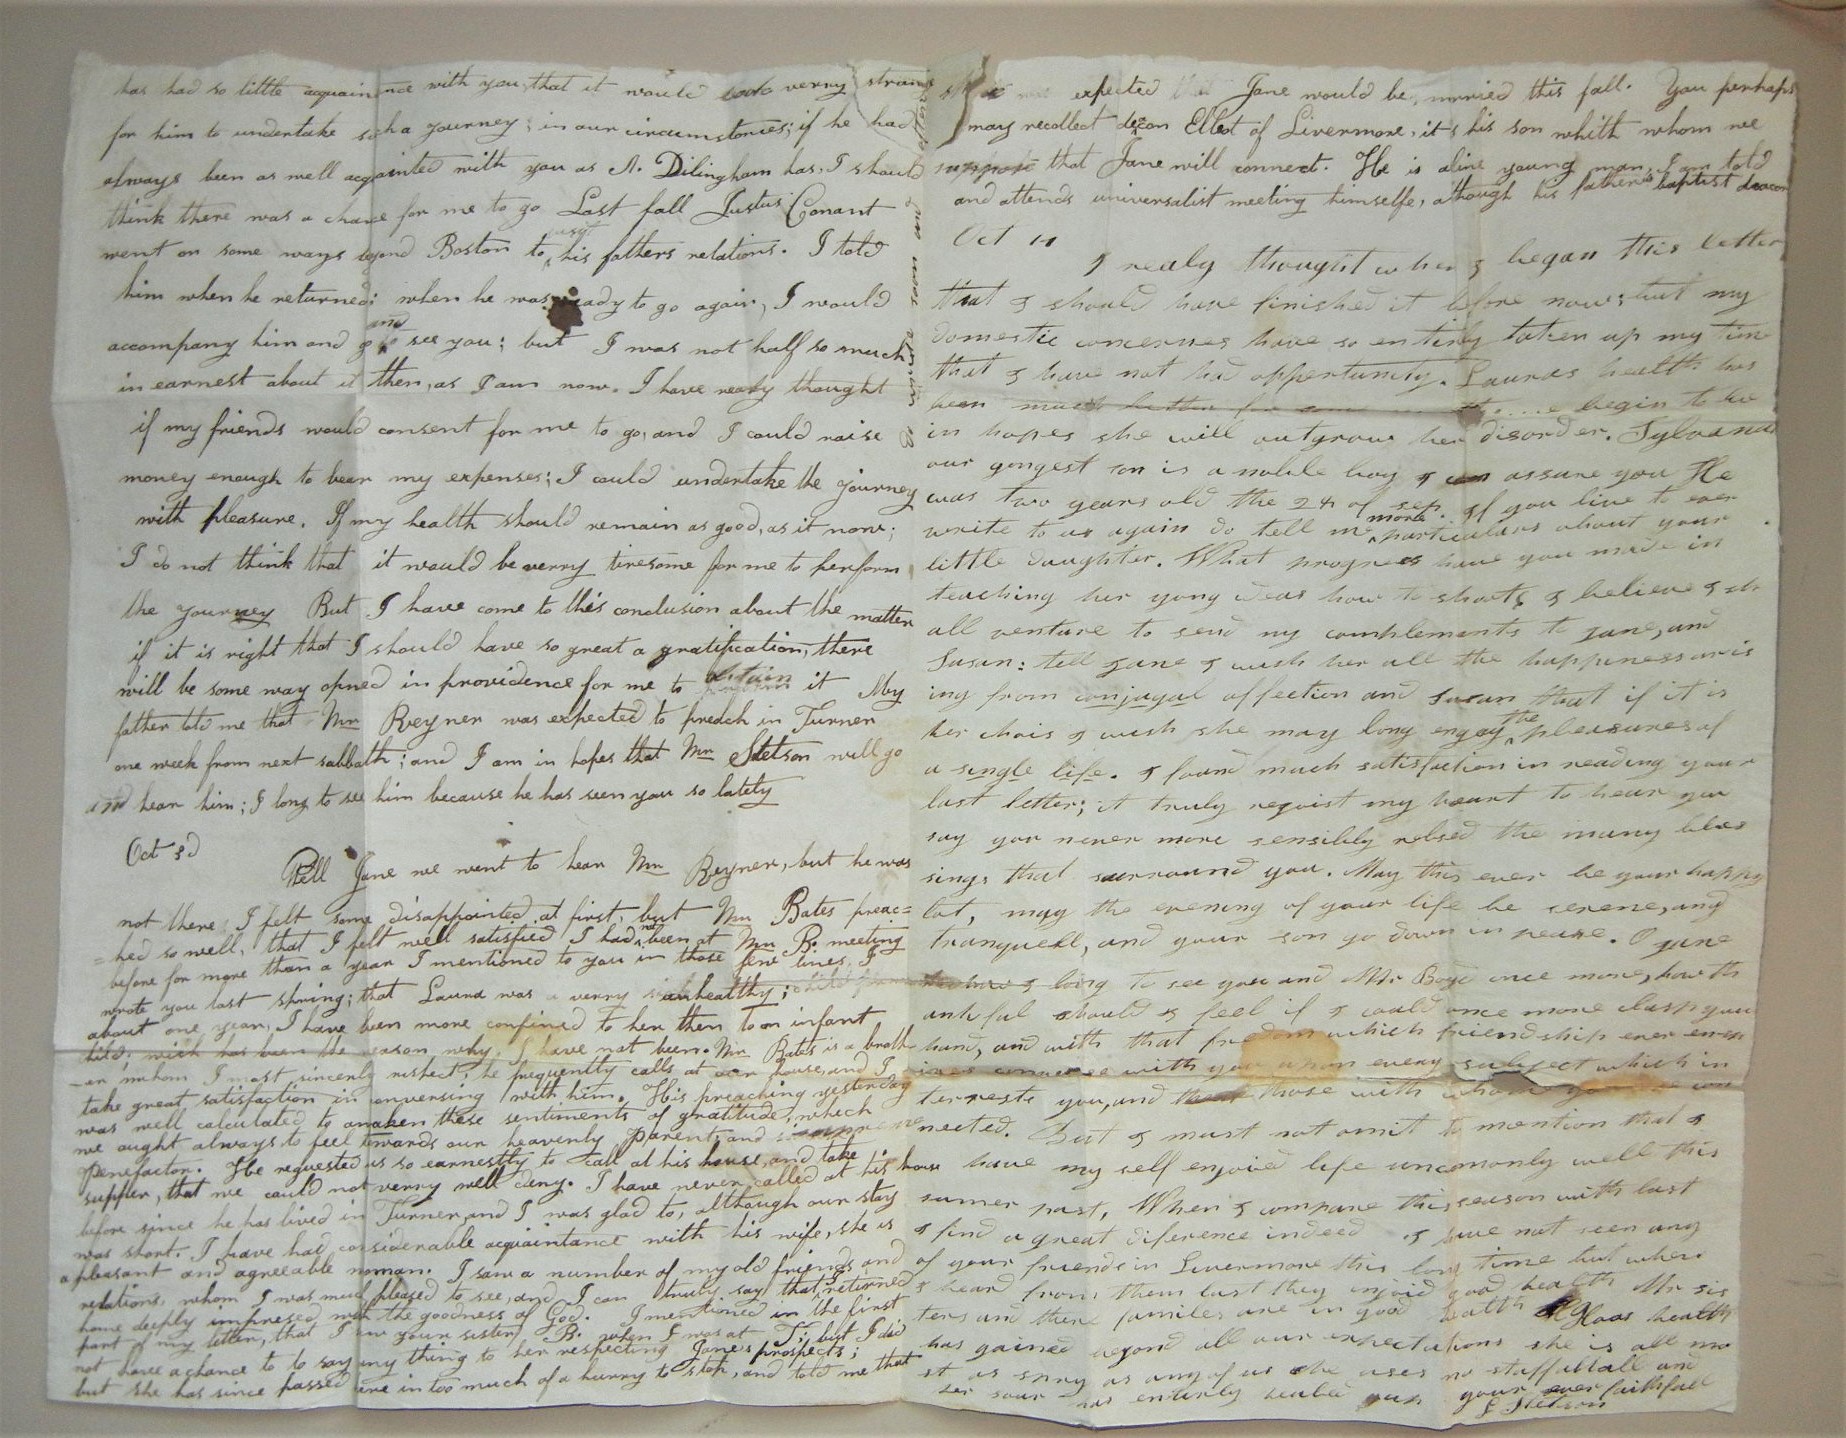 has had so little acquaintance with you, that it would look verry strange
for him to undertake such a journey; in our circumstances; if he had
always been as well acquainted with you as A. Dilingham has, I should
think there was a chance for me to go Last fall Justus Conant
went on some ways beyond Boston to visit his fathers relations. I told
him when he returned; when he was ready to go again, I would
accompany him and go and see you; but I was not half so much
in earnest about it then, as I am now. I have realy thought
if my friends would consent for me to go, and I could raise
money enough to bear my expenses; I could undertake the journey
with pleasure. If my health should remain as good, as it now;
I do not think that it would be verry tiresome for me to perform
the journey But I have come to this conclusion about the matter
if it is right that I should have so great a gratification, there
will be some way opned in providence for me to obtain it My
father told me that Mr Reyner was expected to preach in Turner
one week from next sabbath; and I am in hopes that Mr Stetson will go
and hear him; I long to see him because he has seen you so lately
Oct 3d
Well Jane we went to hear Mr Reyner, but he was
not there I felt some disappointed at first, but Mr Bates preac=
=hed so well, that I felt well satisfied I had not been at Mr B. meeting
before for more than a year I mentioned to you in those few lines I
wrote you last spring; that Laura was a verry unhealthy; child
about one year, I have been more confined to her then to an infant
child; wich has been the reason why I have not been. Mr Bates is a broth
er whom I most sincerly respect; he frequently calls at our house, and I
take great satisfaction in conversing with him. His preaching yesterday
was well calculated to awaken these sentiments of gratitude, which
we aught always to feel towards our heavenly parent, and
benefactor. He requested us so earnestly to call at his house, and take
supper, that we could not verry well deny. I have never called at his house
before since he has lived in Turner, and I was glad to, although our stay
was short. I have had considerable acquaintance with his wife, she is
a pleasant and agreeable woman. I saw a number of my old friends and
relations, whom I was much pleased to see, and I can truly say that I returned
home deeply impresed with the goodness of God. I mentioned in the first
part of my letter, that I saw your sister B. when I was at T; but I did
not have a chance to to say any thing to her respecting Jane's prospects;
but she has since passed here in too much of a hurry to stop, and told me that
expected that Jane would be married this fall. You perhaps
may recollect decon Elleot of Livermore, it s his son whith whom we
suppose that Jane will connect. He is a fine young man I am told
and attends universalist meeting himselfe, although his father is baptist deacon
Oct 11
I realy thought when I began this letter
that I should have finished it before now; but my
domestic concernes have so entirly taken up my time
that I have not had oppertunity. Lauras health has
been much better for some begin to be
in hopes she will outgrow her disorder. Sylvanus
our yongest son is a noble boy I can assure you He
was two years old the 24 of sep. If you live to ever
write to us again do tell me more particulars about your
little daughter. What progress have you made in
teaching her yong ideas how to shoot; I believe I sh
all venture to send my complements to Jane, and
Susan: tell Jane I wish her all the happiness aris
ing from conjugal affection and Susan that if it is
her chois I wish she may long enjoy the pleasures of
a single life. I found much satisfaction in reading your
last letter; it truly rejoist my heart to hear you
say you never more sensibly relised the many bles
sings that surround you. May this ever be your happy
lot, may the evening of your life be serene, and
tranquell, and your son go down in peace. O Jane
how I long to see you and Mr Boyd once more, how th
ankful should I feel if I could once more clasp your
hand, and with that fredom which friendship ever
converse with you upon every subject which in
terrests you, and those with whom you are con
nected. But I must not omit to mention that I
have my self enjoied life uncomonly well this
sumer past, When I compare this season with last
I find a great diference indeed I have not seen any
of your friends in Livermore this long time but when
I heard from them last they injoid good health Mr sis
ters and there familes are in good health health
has gained beyond all our expectations she is all mo
st as spry as any of us she uses no staff atall and
her sour has entirely healed your ever faithfull
L Stetson